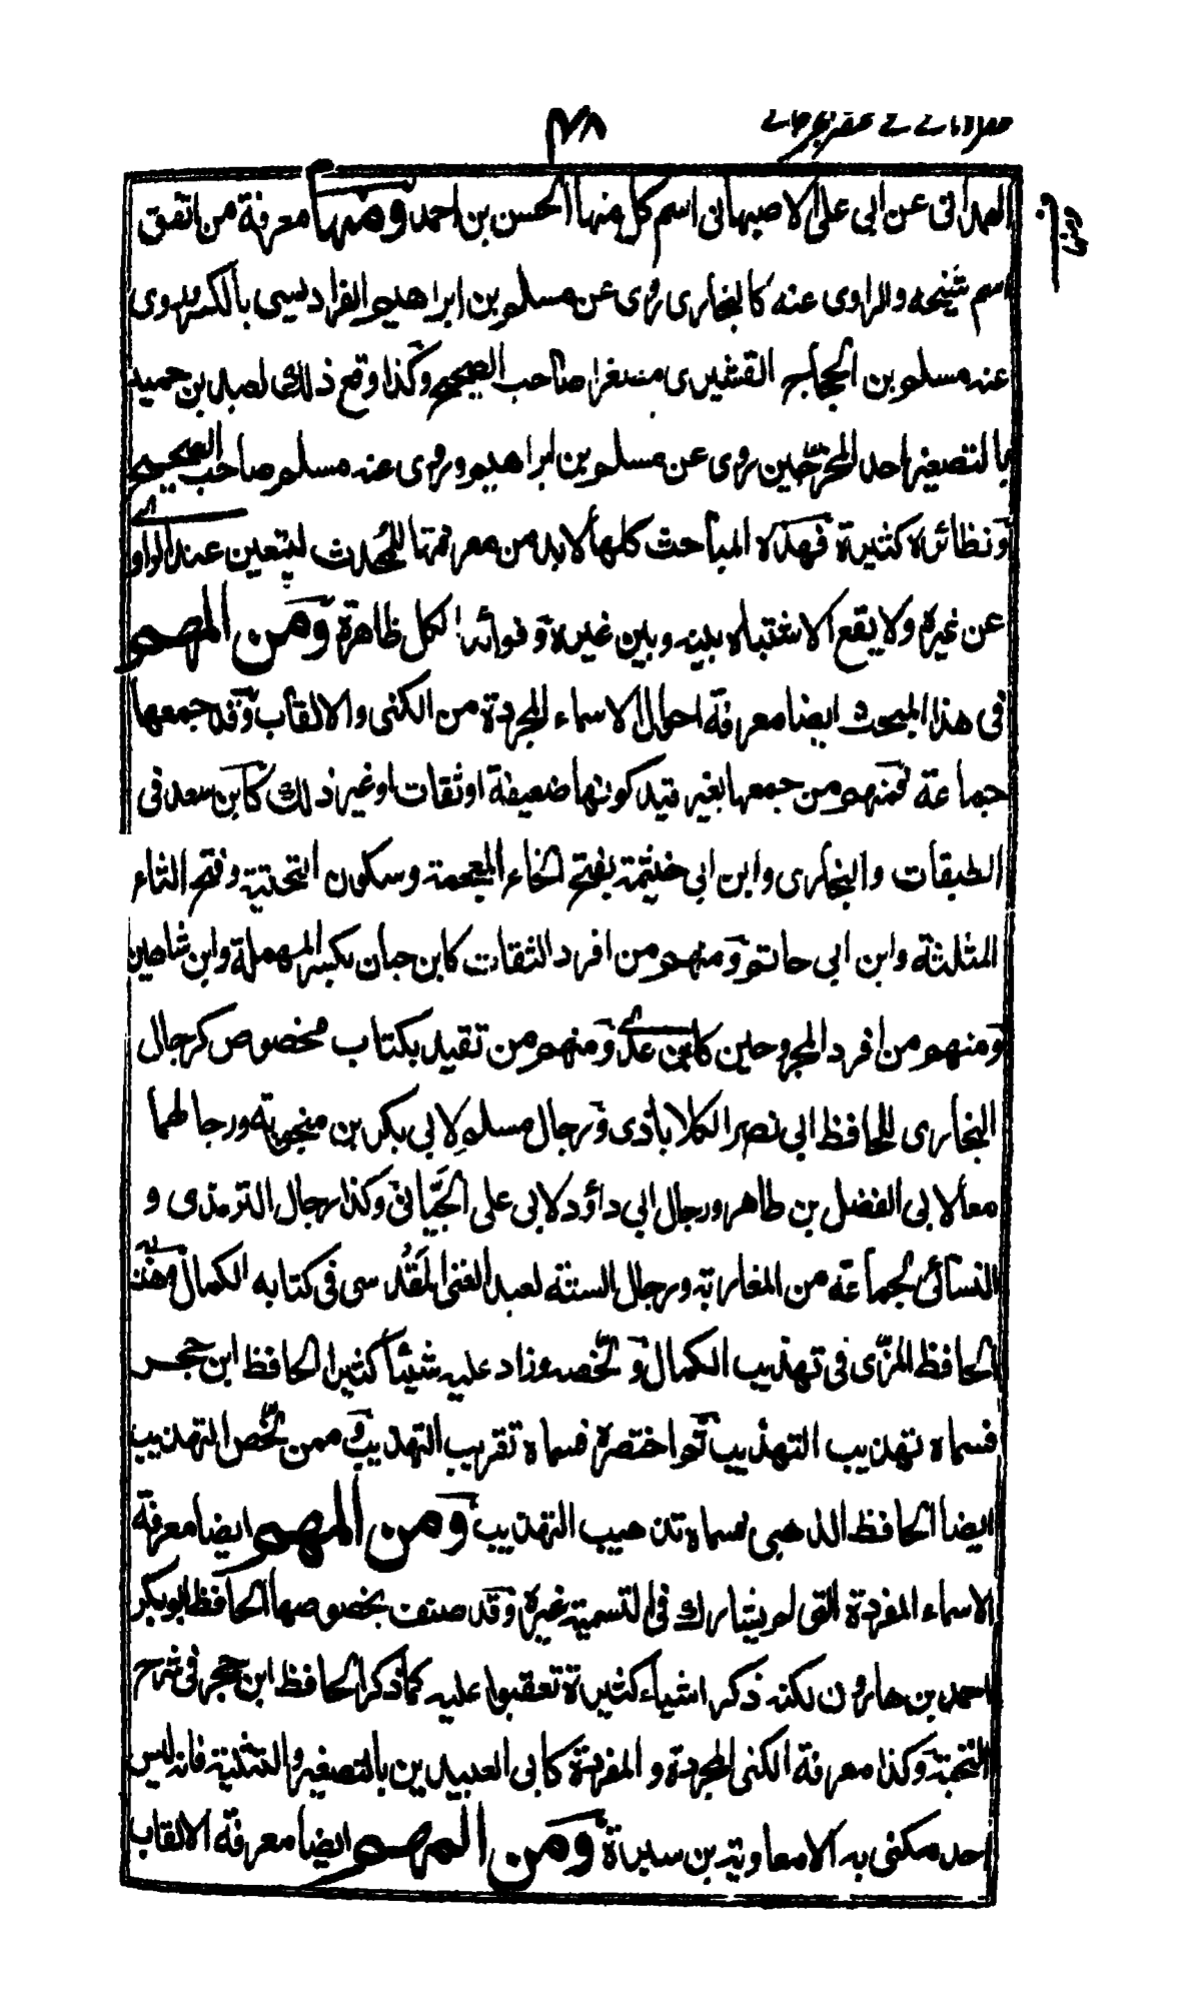 ٣٨
الهمدانى عن ابى على الاصبهانى اسم كل منها الحسن بن احمد ومنها معرفة من اتفق
اسم شيخه والراوى عنه كالبخارى روى عن مسلم بن ابراهيم الفراديسى بالكسر وروى
عنه مسلم بن الحجاج القشيرى مصغرا صاحب الصحيح وكذا وقع ذلك لعبد بن حميد
بالتصغير احد المخرّجين روى عن مسلم بن ابراهيم وروى عنه مسلم صاحب الصحيح
ونظائره كثيرة فهذه المباحث كلها لابد من معرفتها للمحدث ليتعين عنده الراوى
عن غيره ولا يقع الاشتباه بينه وبين غيره وفوائد الكل ظاهرة ومن المهم
فى هذا المبحث ايضا معرفة احوال الاسماء المجردة من الكنى والالقاب وقد جمعها
جماعة فمنهم من جمعها بغير قيد كونها ضعيفة او ثقات او غير ذلك كابن سعد فى
الطبقات والبخارى وابن ابى خيثمة بفتح الخاء المعجمة وسكون التحتية وفتح الثاء
المثلثة وابن ابى حاتم ومنهم من افرد الثقات كابن حبان بكسر المهملة وابن شاهين
ومنهم من افرد المجروحين كابن عدى ومنهم من تقيد بكتاب مخصوص كرجال
البخارى للحافظ ابى نصر الكلاباذى ورجال مسلم لابى بكر بن منجويه ورجالهما
معا لابى الفضل بن طاهر ورجال ابى داؤد لابى على الجيّانى وكذا رجال الترمذى و
النسائى لجماعة من المغاربة ورجال الستة لعبد الغنى المقدسى فى كتابه الكمال وهذبه
الحافظ المزّى فى تهذيب الكمال ولخّصه وزاد عليه شيئا كثيرا الحافظ ابن حجر
فسماه تهذيب التهذيب ثم اختصره فسماه تقريب التهذيب وممن لخّص التهذيب
ايضا الحافظ الذهبى سماه تذهيب التهذيب ومن المهم ايضا معرفة
الاسماء المفردة التى لم يشارك فى التسمية غيره وقد صنف بخصوصها الحافظ ابو بكر
احمد بن هارون لكنه ذكر اشياء كثيرة تعقبوا عليه كما ذكر الحافظ ابن حجر فى شرح
النخبة وكذا معرفة الكنى المجردة والمفردة كابى العبيدين بالتصغير والتثنية فانه ليس
احد مكنى به الا معاوية بن سبرة ومن المهم ايضا معرفة الالقاب